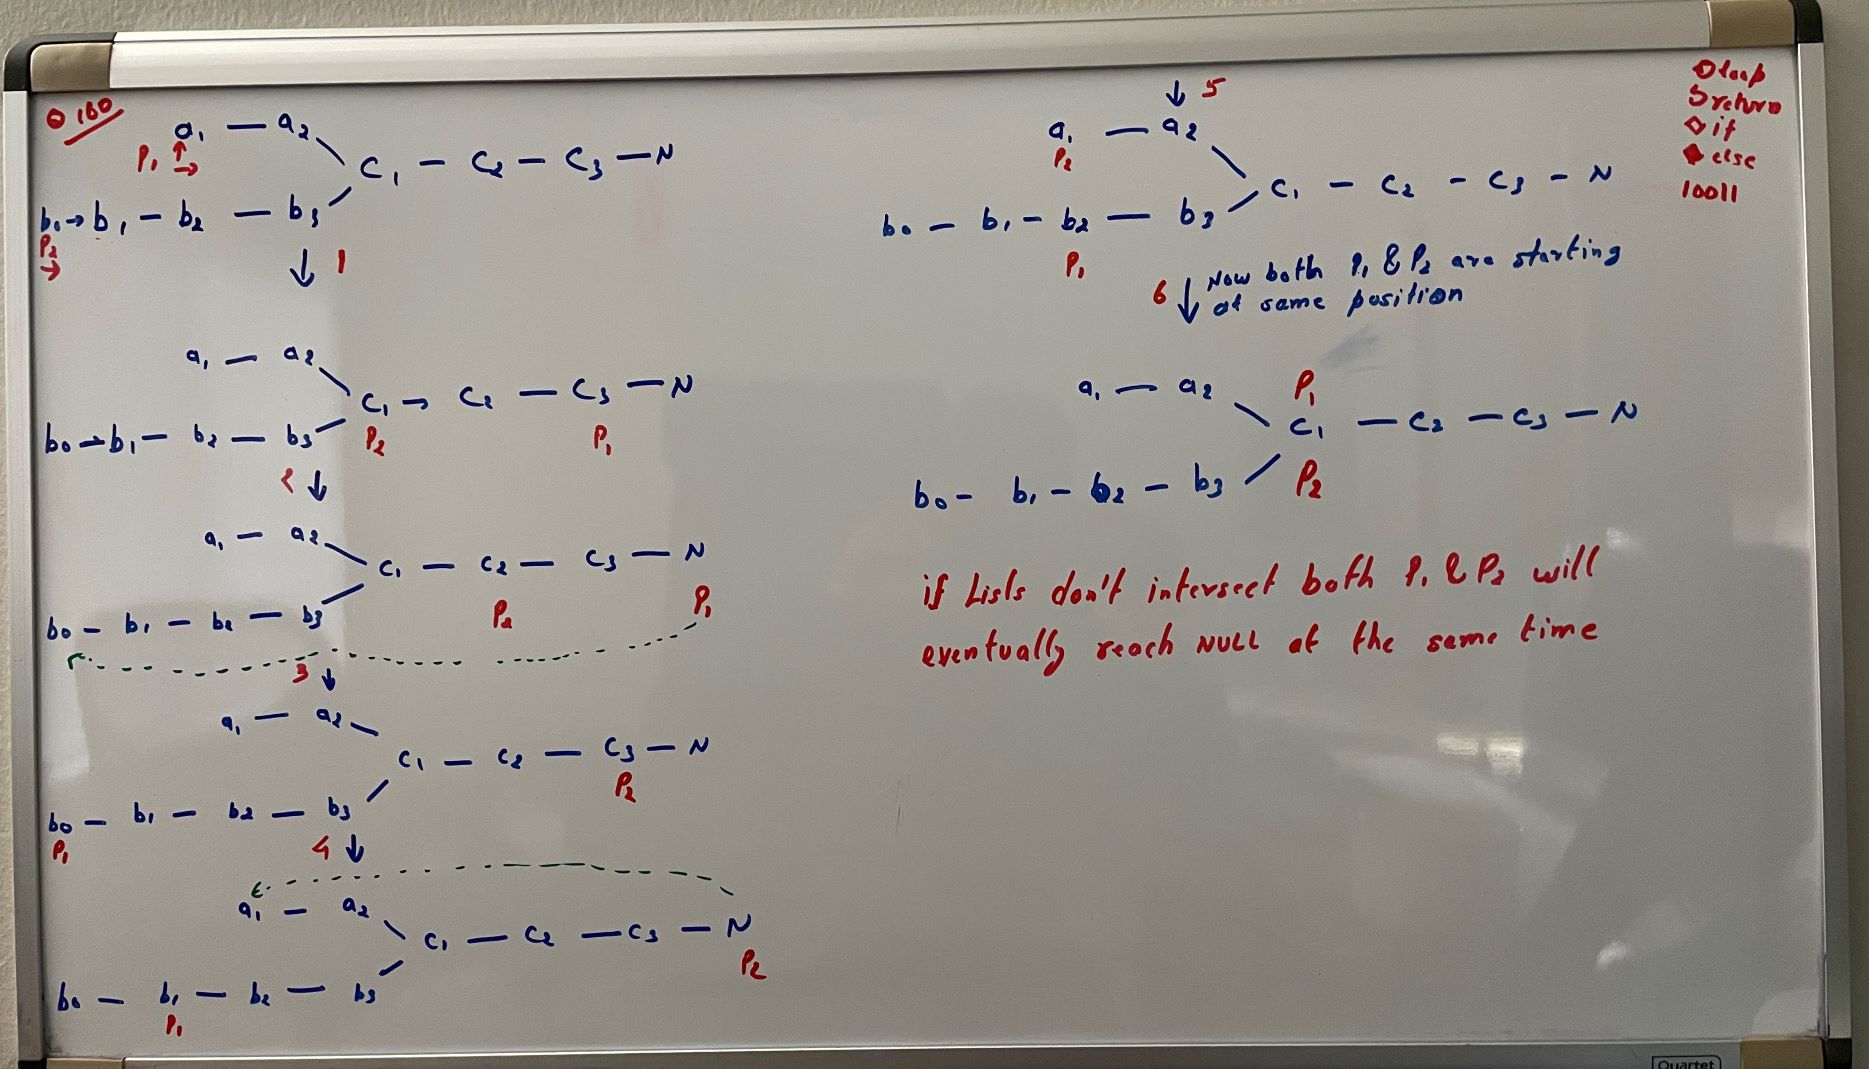 160
a1 — a2
P1
C1 — C2 — C3 — N
b0 → b1 — b2 — b3
P2
↓ 1
a1 — a2
C1 → C2 — C3 — N
P2 P1
b0 → b1 — b2 — b3
2 ↓
a1 — a2
C1 — C2 — C3 — N
P2 P1
b0 — b1 — b2 — b3
3 ↓
a1 — a2
C1 — C2 — C3 — N
P2
b0 — b1 — b2 — b3
P1
4 ↓
a1 — a2
C1 — C2 — C3 — N
P2
b0 — b1 — b2 — b3
P1
↓ 5
a1 — a2
P2
C1 — C2 — C3 — N
b0 — b1 — b2 — b3
P1
6 ↓ Now both P1 & P2 are starting
at same position
a1 — a2
P1
C1 — C2 — C3 — N
P2
b0 — b1 — b2 — b3
if Lists don't intersect both P1 & P2 will
eventually reach NULL at the same time
loop
return
if
else
10011
Quartet